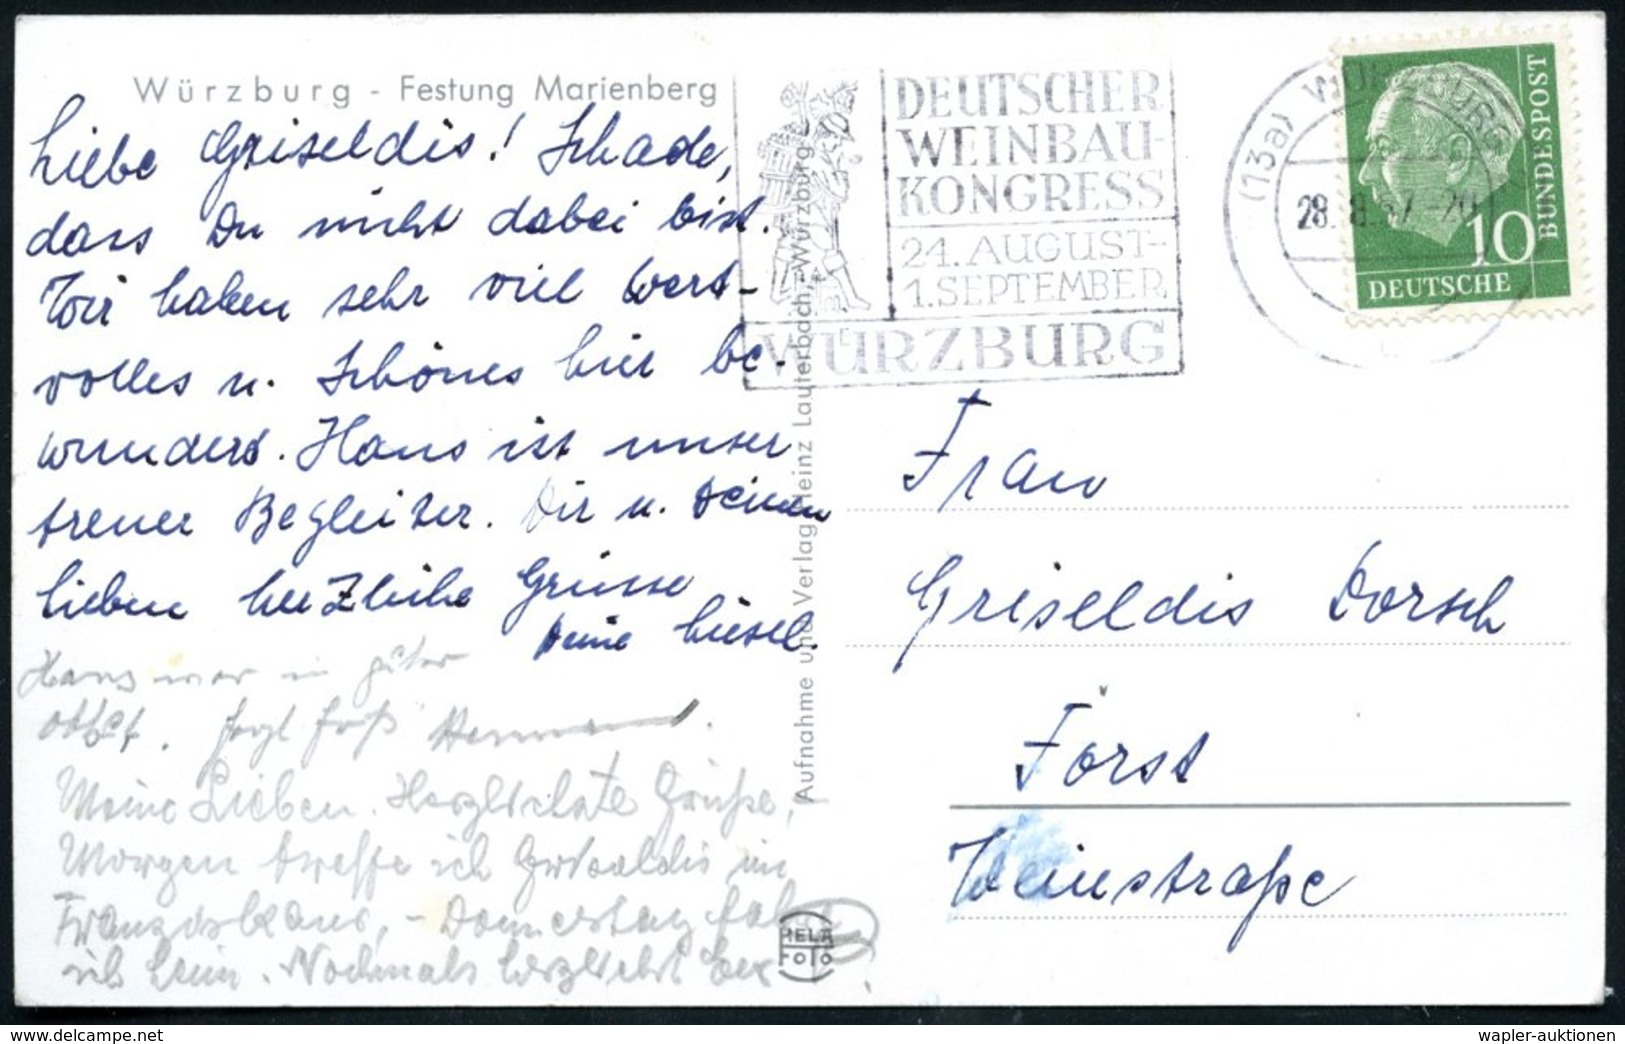 Würzburg - Festung Marienberg
Liebe Griseldis! Schade,
dass Du nicht dabei bist.
Wir haben sehr viel Wert-
volles u. Schönes hier be-
wundert. Hans ist unser
treuer Begleiter. Dir u. Deinen
lieben herzliche Grüsse
Deine Liesel.
Hans war in guter
Hermann.
Meine Lieben. Herzlichste Grüße,
Morgen treffe ich im
- Donnerstag
ich heim. Nochmals herzlichst
Aufnahme und Verlag Heinz Lauterbach, Würzburg
HELA
FOTO
DEUTSCHER
WEINBAU-
KONGRESS
24. AUGUST-
1. SEPTEMBER
WÜRZBURG
(13a) WÜRZBURG
28. 8. 57 -20
DEUTSCHE
BUNDESPOST
10
Frau
Griseldis Dorsch
Forst
Weinstraße
wapler-auktionen